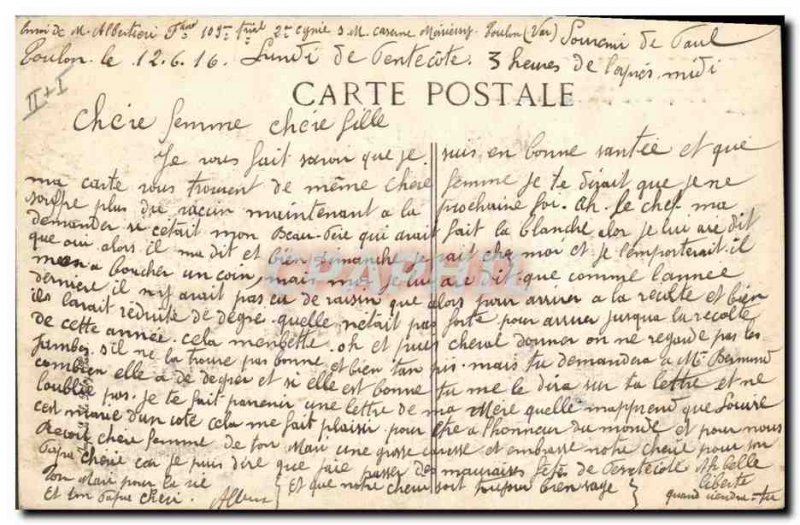 Envoi de M. Albertieri 2e Cynie 3 M. caserne Toulon (Var) Souvenir de Paul
Toulon. le 12.6.16. Lundi de Pentecote. 3 heures de l'aprés midi
II + I
CARTE POSTALE
Chére femme chére fille
Je vous fait savoir que je suis en bonne santée et que
ma carte vous trouvent de même chere femme Je te dirait que je ne
soufre plus du maintenant a la prochaine foi. Ah. Le chef ma
demander si cetait mon Beau-Père qui avait fait la blanche alor je lui ai dit
que oui alors il ma dit et bien dimanche je vait chez moi et je l'emporterait il
men a boucher un coin, mais moi je lui ai dit que comme l'année
derniere il n'y avait pas eu de raisin que alors pour arriver a la recolte et bien
ils lavait reduite de degre quelle n'était pas forte pour arriver jusqua la recolte
de cette année. cela oh et puis cheval donner on ne regarde pas les
jambes. s'il ne la trouve pas bonne et bien tan pis. mais tu demandera a Mr
combien elle a de degrer et si elle est bonne tu me le dira sur ta lettre et ne
loublie pas. Je te fait parvenir une lettre de ma Mère quelle mapprend que
cest d'un coté cela me fait plaisir pour a l'honneur du monde et pour nous
Recoit chere femme de ton Mari une grosse caresse et embrasse notre cherie pour son
Papa cherie car je puis dire que faire passer de mauvaises fete de Pentecote Ah belle
ton Mari pour la vie Et que notre cherie soit toujour bien sage liberté
Et ton Papa cheri. Albert quand viendra-tu
CPARAMA